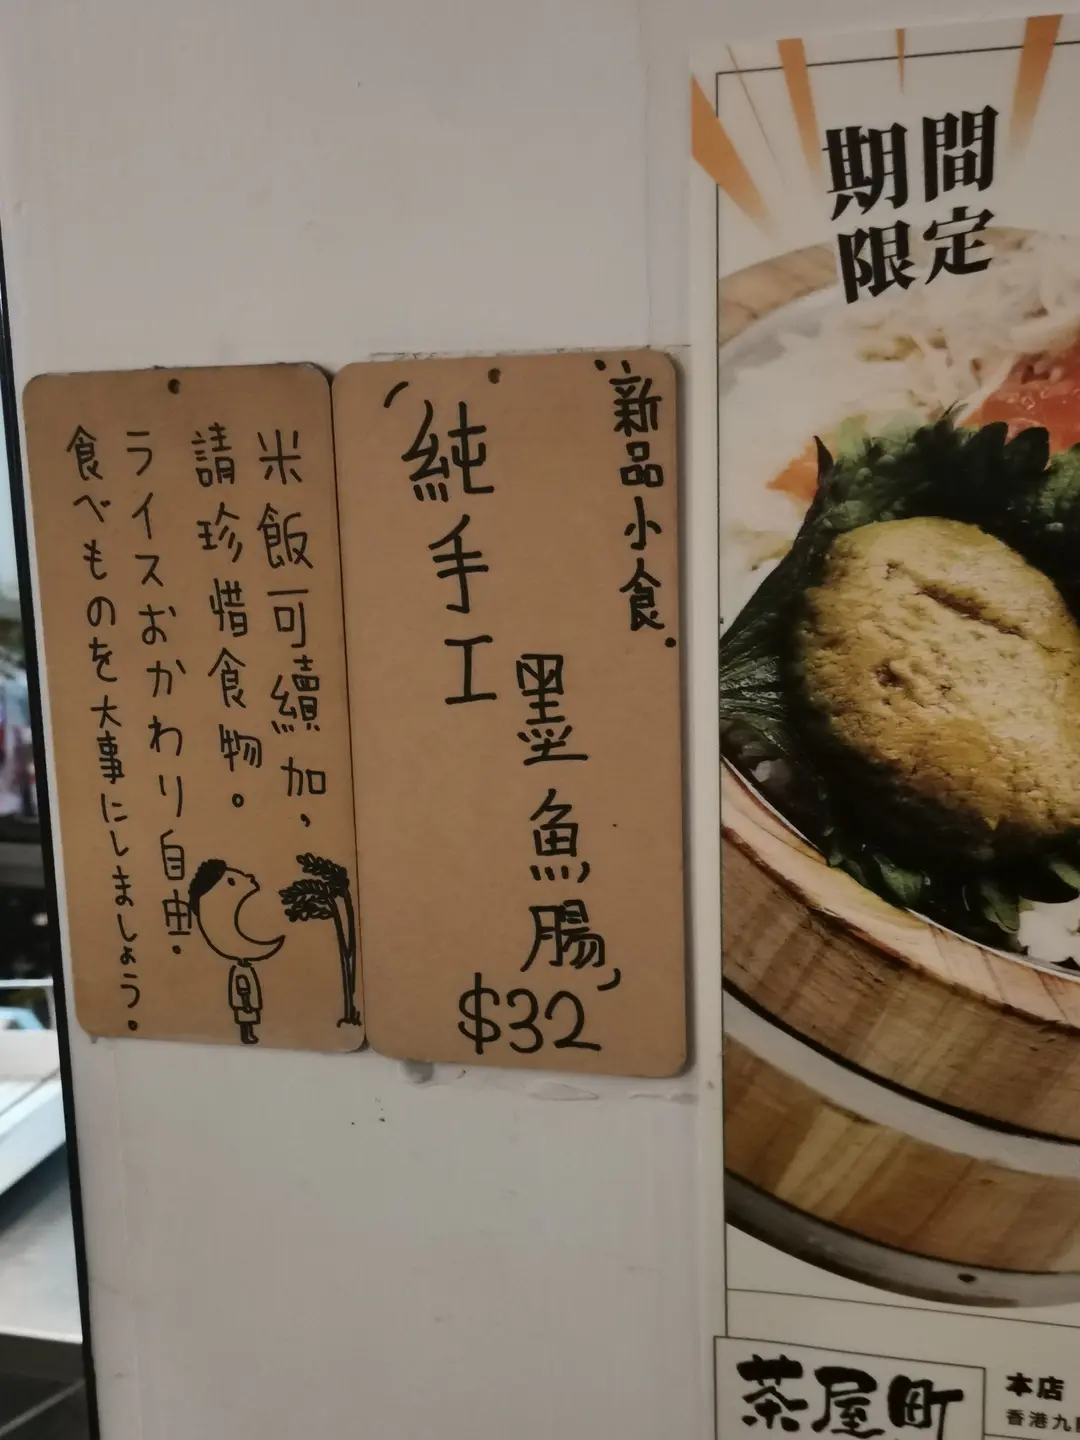 米飯可續加，
請珍惜食物。
ライスおかわり自由。
食べものを大事にしましょう。
新品小食
純手工
墨魚腸
$32
期間
限定
茶屋町
本店
香港九